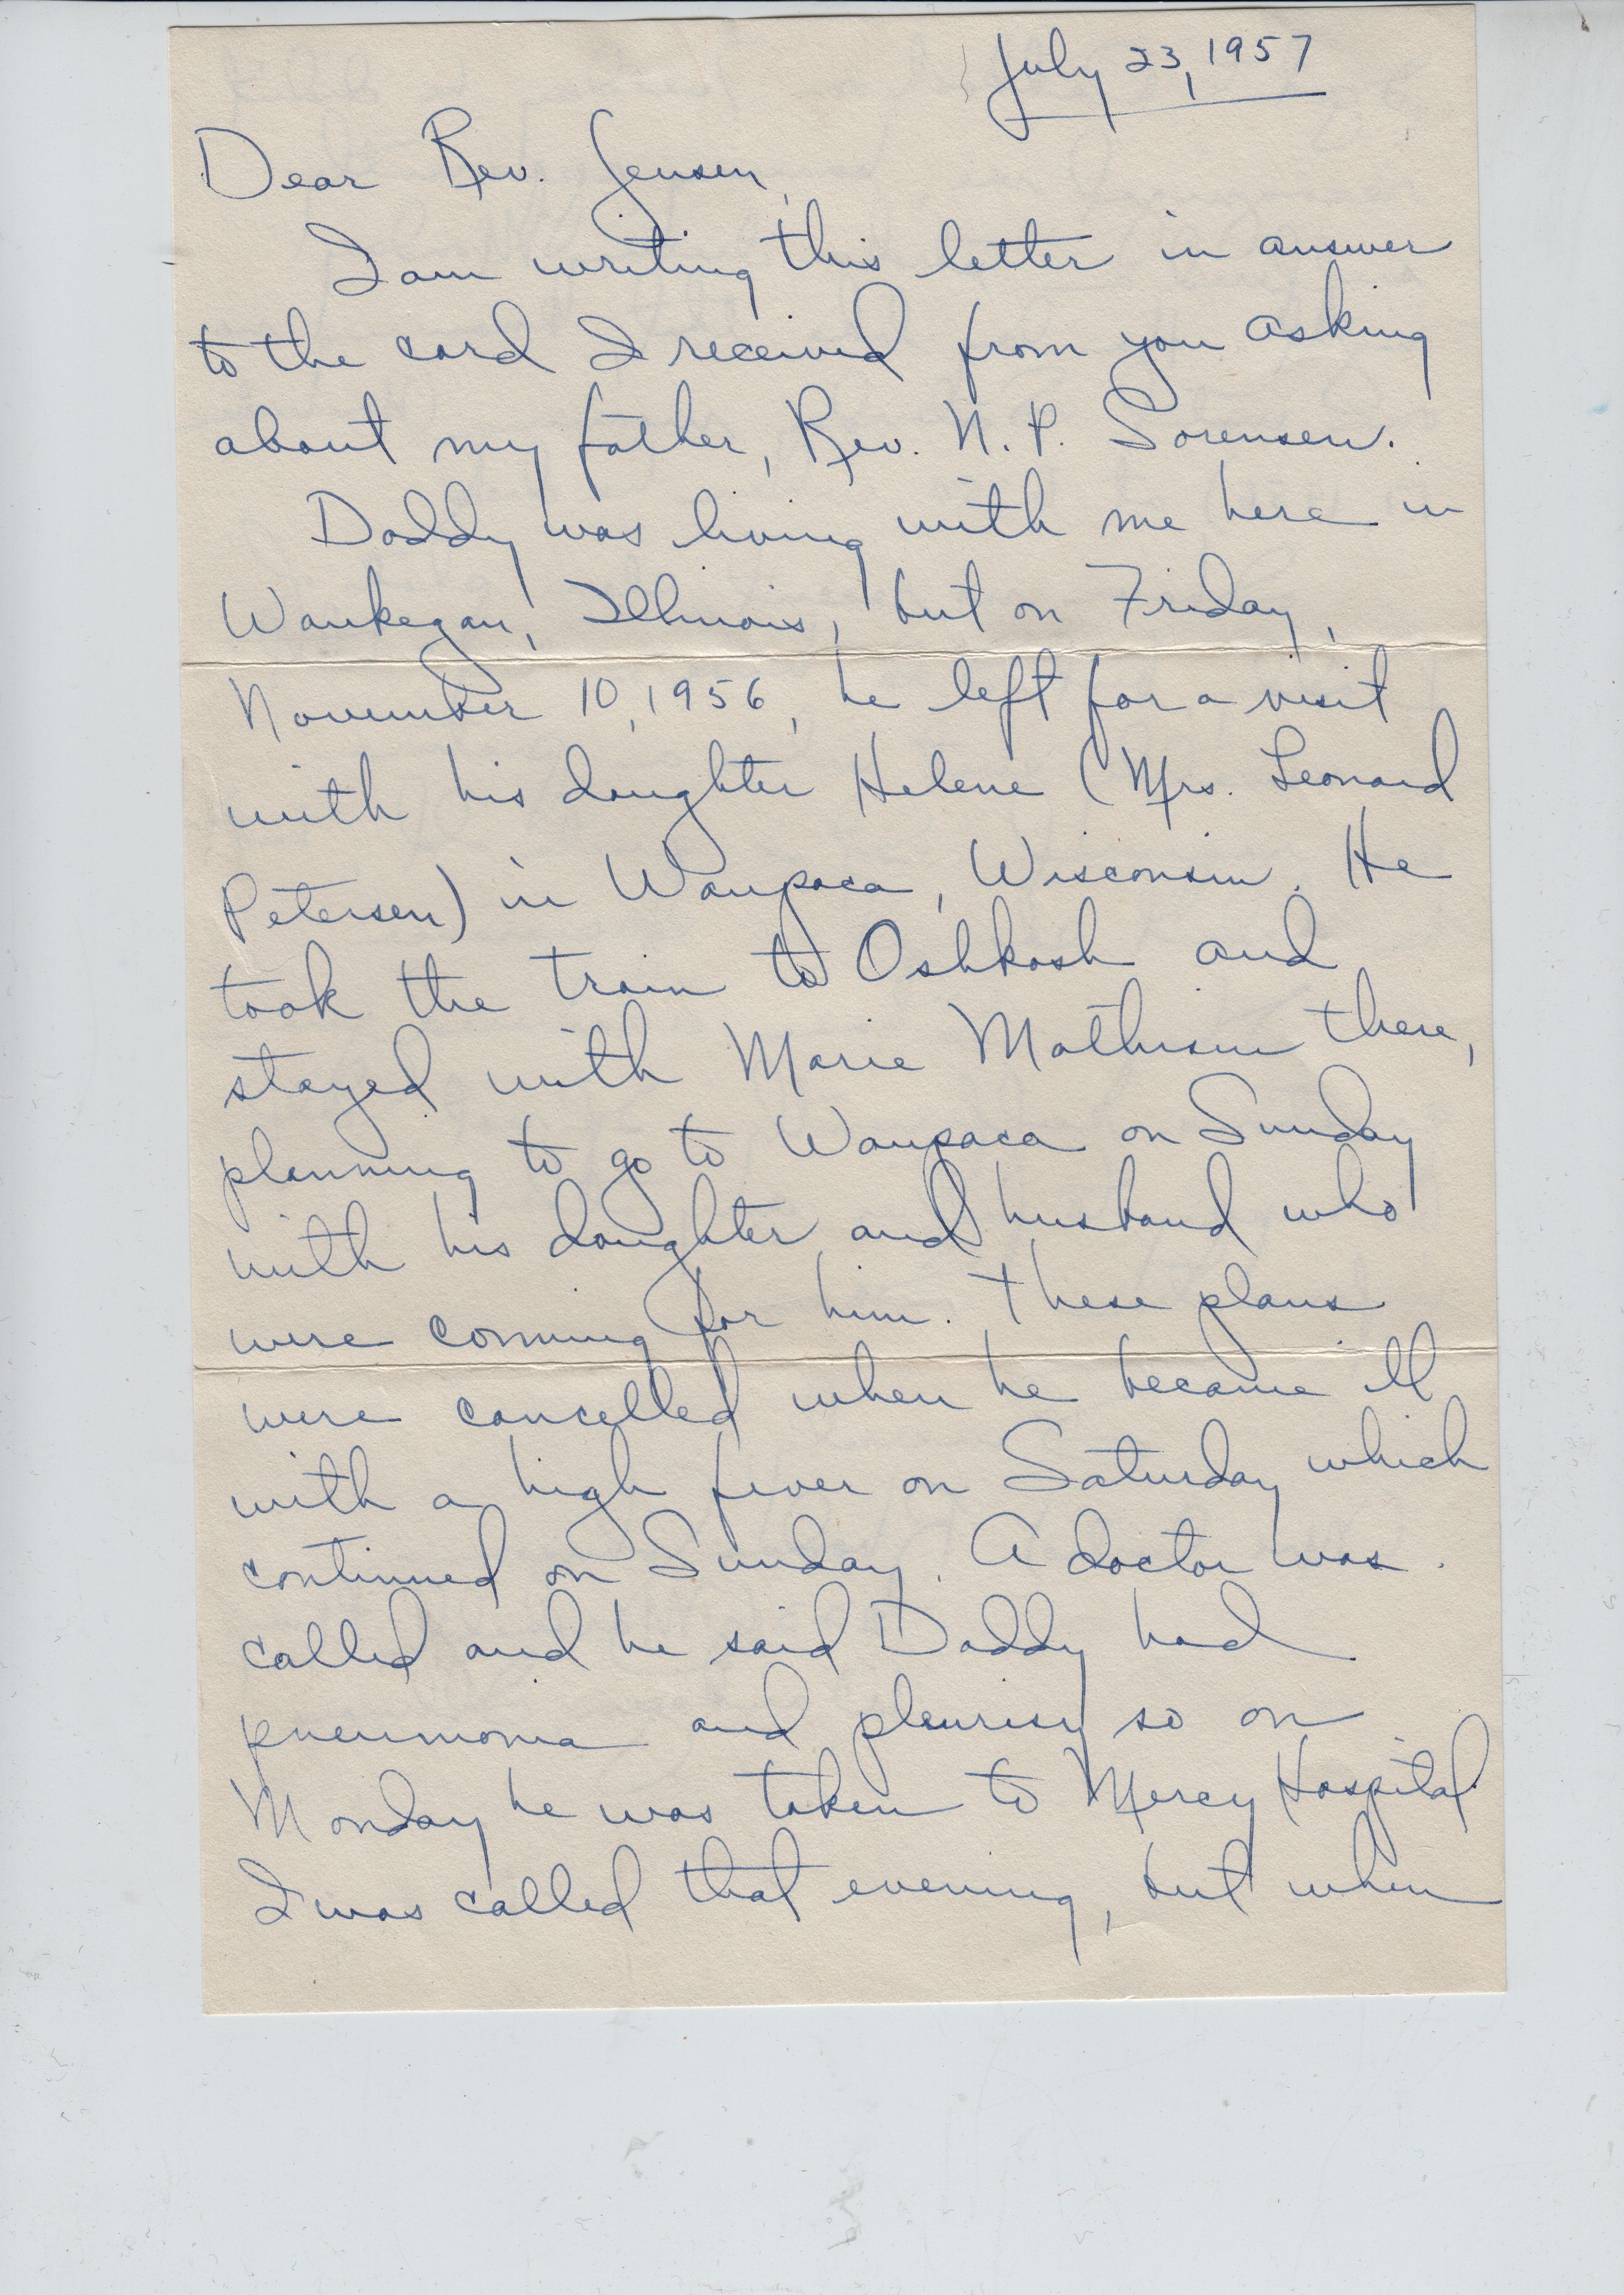 July 23, 1957
Dear Rev. Jensen,
I am writing this letter in answer
to the card I received from you asking
about my father, Rev. N. P. Sorensen.
Daddy was living with me here in
Waukegan, Illinois, but on Friday,
November 10, 1956, he left for a visit
with his daughter Helene (Mrs. Leonard
Petersen) in Waupaca, Wisconsin. He
took the train to Oshkosh and
stayed with Marie Mathisen there,
planning to go to Waupaca on Sunday
with his daughter and husband who
were coming for him. These plans
were cancelled when he became ill
with a high fever on Saturday which
continued on Sunday. A doctor was
called and he said Daddy had
pneumonia and pleurisy so on
Monday he was taken to Mercy Hospital.
I was called that evening, but when